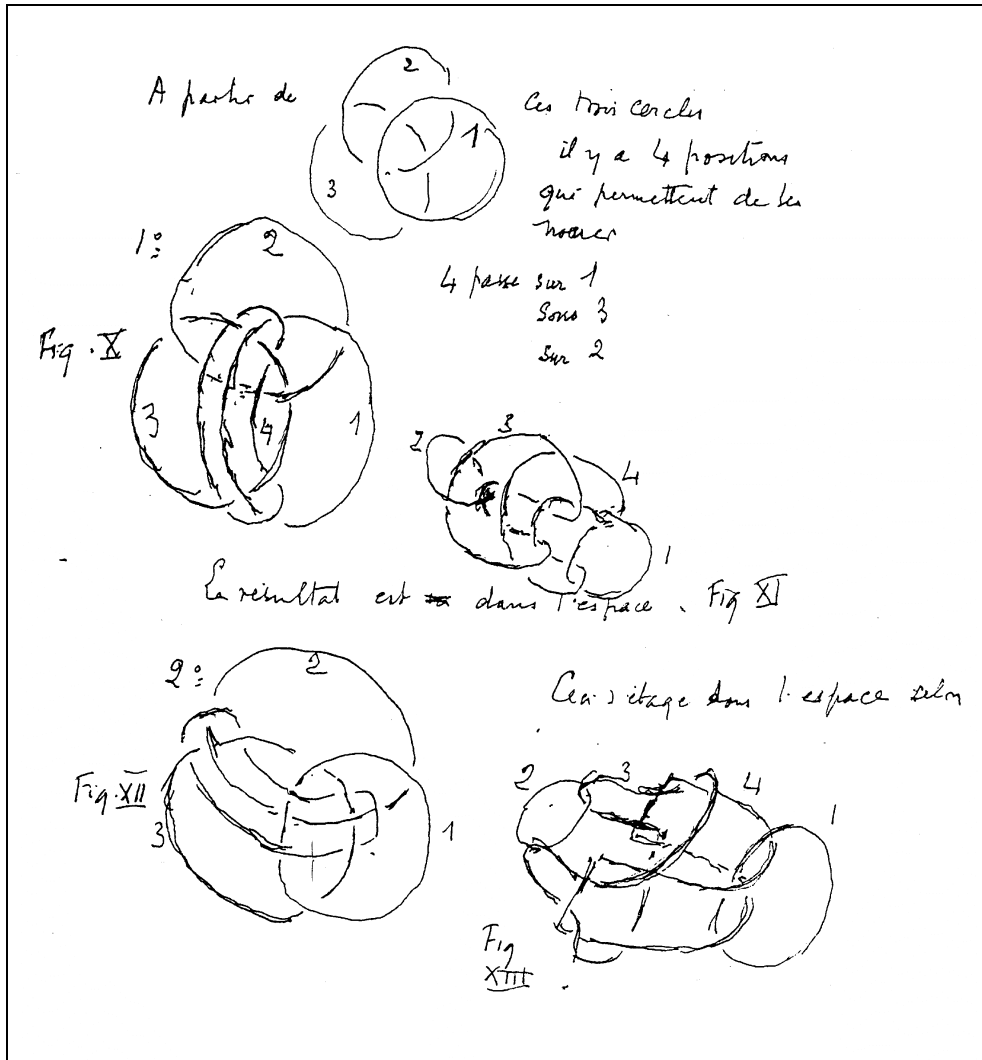 A partir de
2
1
3
Ces trois cercles
il y a 4 positions
qui permettent de les
nouer
1º:
2
Fig. X
3
4
1
4 passe sur 1
sous 3
sur 2
2
3
4
1
Le résultat est dans l'espace. Fig XI
2º:
2
Fig. XII
3
1
Ceci s'étage dans l'espace selon
2
3
4
1
Fig
XIII.